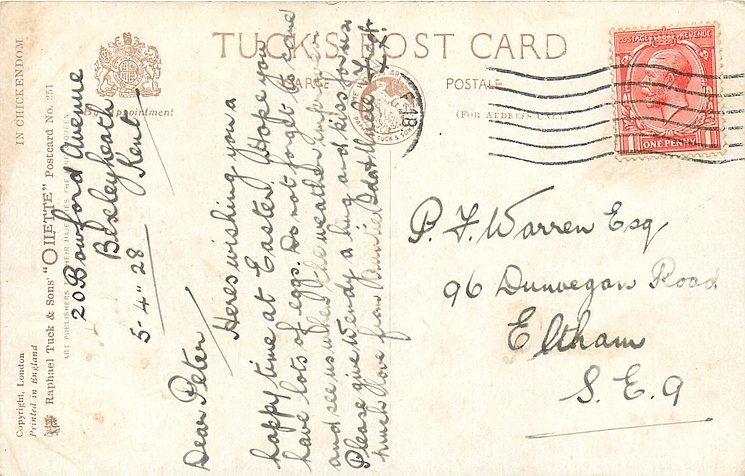 TUCK'S POST CARD
CARTE POSTALE
(FOR ADDRESS ONLY)
By Appointment
IN CHICKENDOM
Raphael Tuck & Sons' "OILETTE" Postcard No. 251
ART PUBLISHERS TO THEIR MAJESTIES THE KING & QUEEN
Copyright, London
Printed in England
POSTAGE REVENUE
1 ONE PENNY 1
20 Bowford Avenue
Bexleyheath
Kent
5-4"28
Dear Peter/
Heres wishing you a
happy time at Easter, Hope you
have lots of eggs. Do not forget to come
and see us when the weather improves
Please give Wendy a hug and kiss for us
much love from Auntie and Uncle
P. F. Warren Esq
96 Dunvegan Road
Eltham
S.E.9